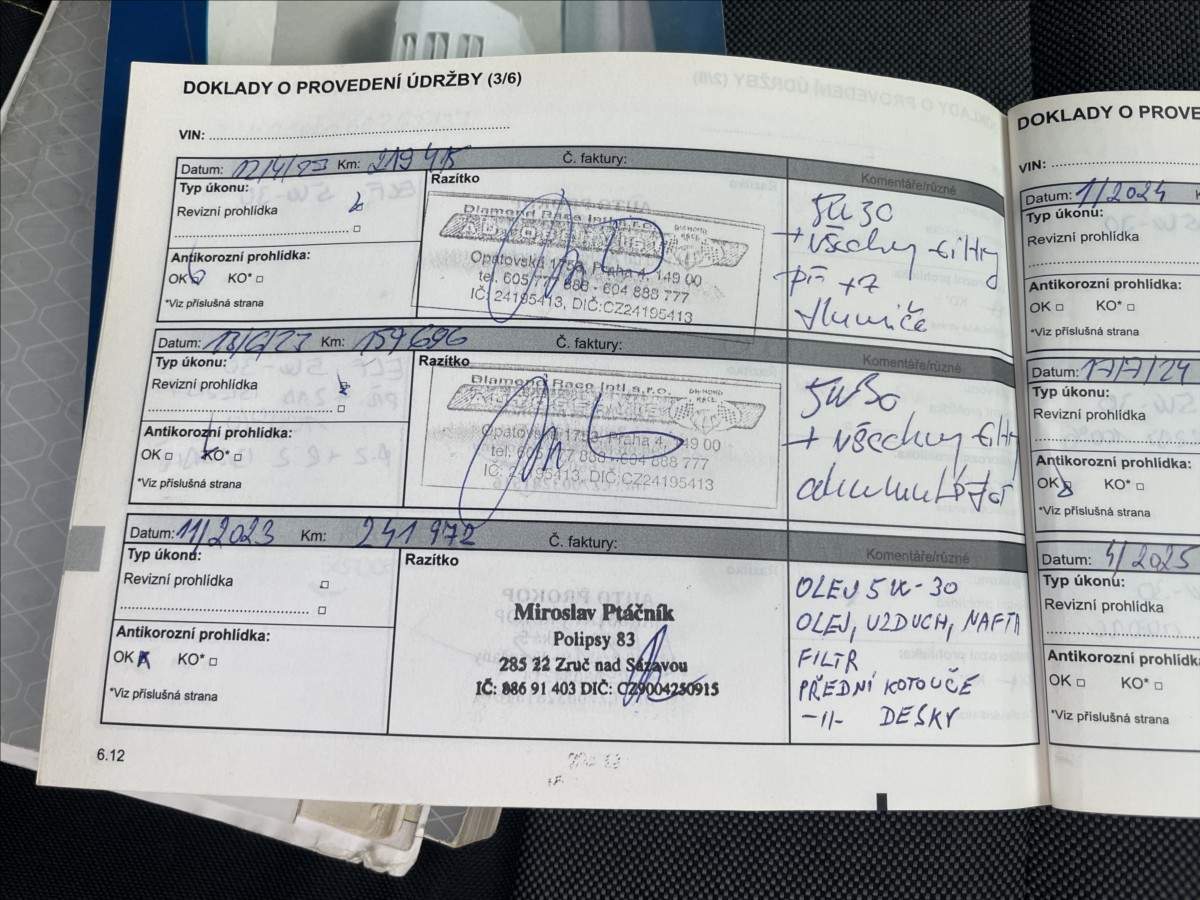 DOKLADY O PROVEDENÍ ÚDRŽBY (3/6)
VIN:
Datum: 12/4/23 Km: Č. faktury:
Typ úkonu:
Razítko
Komentáře/různé
Revizní prohlídka
Antikorozní prohlídka:
OK KO*
*Viz příslušná strana
Diamond Race Intl.s.r.o.
DIAMOND RACE
Opatovská 1753, Praha 4, 149 00
tel. 605 777 888 - 604 888 777
IČ: 24195413, DIČ:CZ24195413
5W30
+ všechny filtry
př +z
tlumiče
Datum: Km: 159 696 Č. faktury:
Typ úkonu:
Razítko
Komentáře/různé
Revizní prohlídka
Antikorozní prohlídka:
OK KO*
*Viz příslušná strana
Diamond Race Intl.s.r.o.
DIAMOND RACE
Opatovská 1753, Praha 4, 149 00
tel. 605 777 888 - 604 888 777
IČ: 24195413, DIČ:CZ24195413
5W30
+ všechny filtry
akumulátor
Datum: 11/2023 Km: 241 972 Č. faktury:
Typ úkonu:
Razítko
Komentáře/různé
Revizní prohlídka
Antikorozní prohlídka:
OK KO*
*Viz příslušná strana
Miroslav Ptáčník
Polipsy 83
285 22 Zruč nad Sázavou
IČ: 886 91 403 DIČ: CZ9004250915
OLEJ 5W-30
OLEJ, VZDUCH, NAFTA
FILTR
PŘEDNÍ KOTOUČE
-11- DESKY
6.12
DOKLADY O PROVE
VIN:
Datum: 1/2024
Typ úkonu:
Revizní prohlídka
Antikorozní prohlídka:
OK KO*
*Viz příslušná strana
Datum: 17/7/24
Typ úkonu:
Revizní prohlídka
Antikorozní prohlídka:
OK KO*
*Viz příslušná strana
Datum: 4/2025
Typ úkonu:
Revizní prohlídka
Antikorozní prohlídka
OK KO*
*Viz příslušná strana